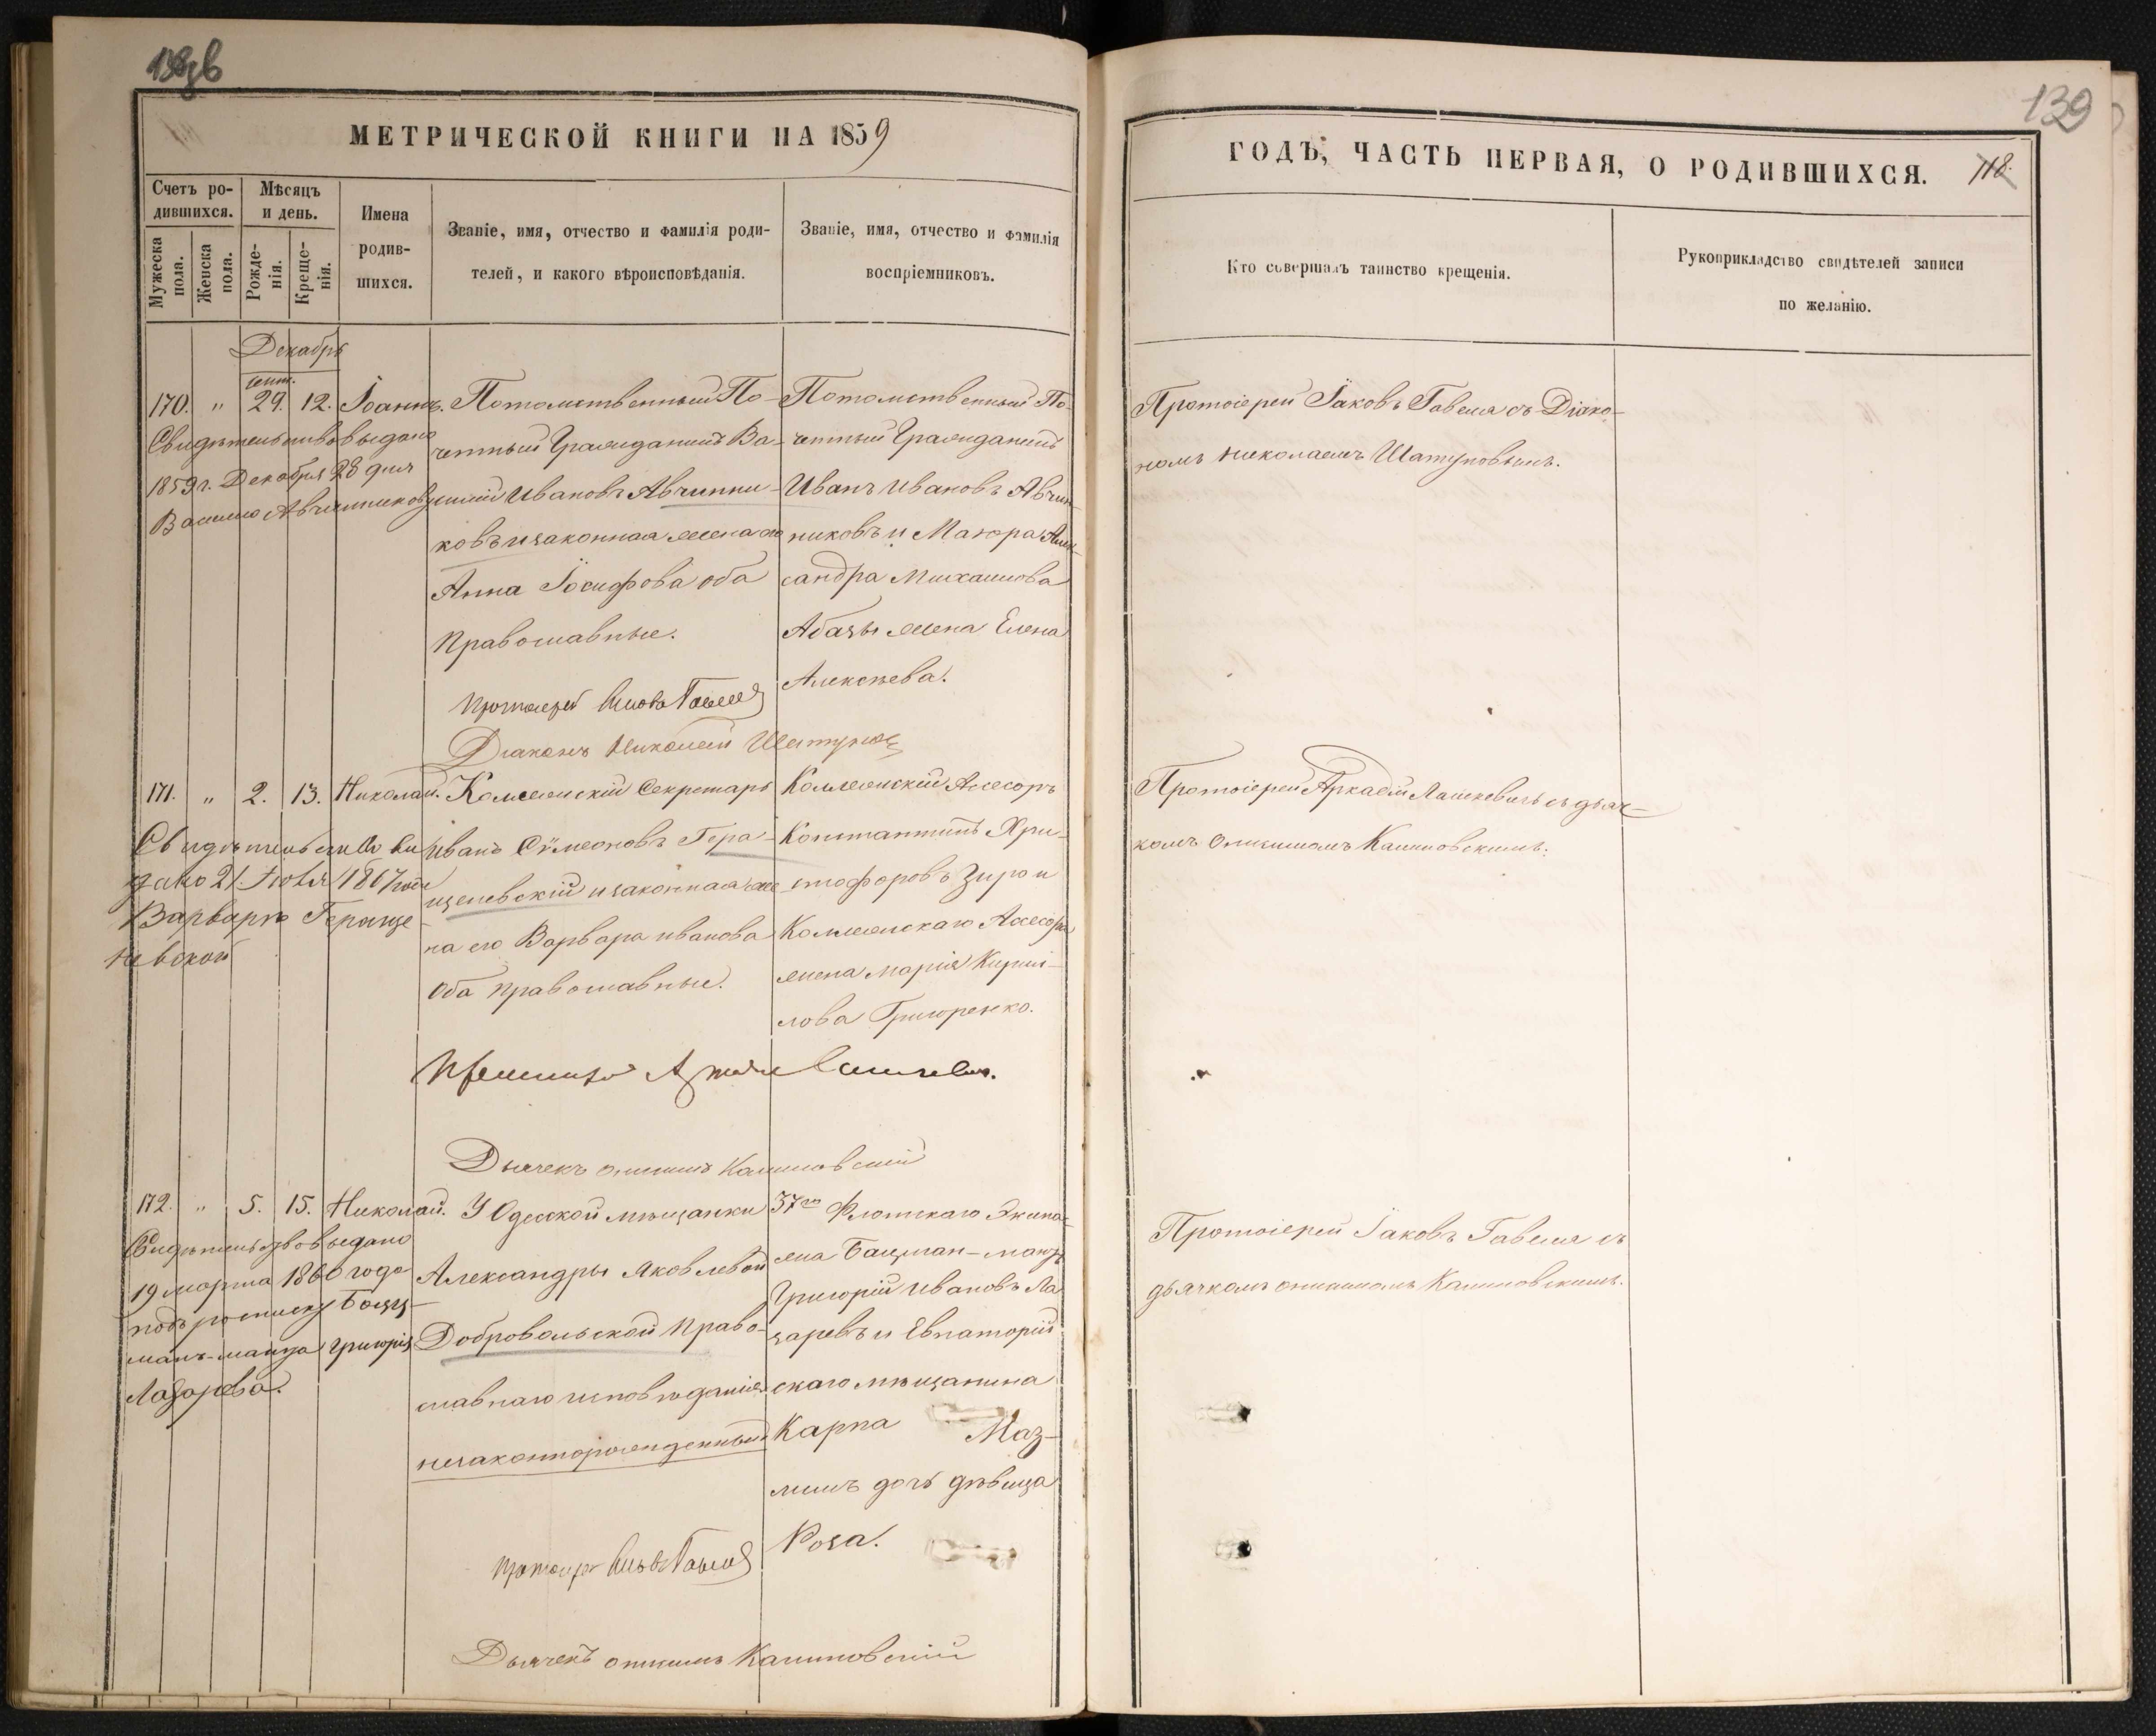 МЕТРИЧЕСКОЙ КНИГИ НА 1859
Счетъ ро-
дившихся.
Мужеска
пола.
Женска
пола.
Мѣсяцъ
и день.
Рожде-
нія.
Креще-
нія.
Имена
родив-
шихся.
Званіе, имя, отчество и фамилія роди-
телей, и какого вѣроисповѣданія.
Званіе, имя, отчество и фамилія
воспріемниковъ.
Декабрь
170. " 29. 12. Іоаннъ.
Свидѣтельство выдано
1859 г. Декабря 28 дня
Василію Авчинникову
Потомственный По-
четный Гражданинъ Ва-
силій Ивановъ Авчинни-
ковъ и законная жена его
Анна Іосифова оба
Православные.
Потомственный По-
четный Гражданинъ
Иванъ Ивановъ Авчин-
никовъ и Маіора Алек-
сандра Михаилова
Абазы жена Елена
Алексѣева.
Протоіерей Іаковъ Гавеля
Діаконъ Николай Шатуновъ
171. " 2. 13. Николай.
Свидѣтельство вы
дано 21. Іюля 1867 года
Варварѣ Гераще-
невской
Коллежскій Секретарь
Иванъ Сѵмеоновъ Гера-
щеневскій и законная же
на его Варвара Иванова
Оба Православные.
Коллежскій Ассесоръ
Константинъ Хри-
стофоровъ Зиро и
Коллежскаго Ассесора
жена Марія Кирил-
лова Григоренко.
Дьячекъ Онисимъ Калиновскій
172. " 5. 15. Николай.
Свидѣтельство выдано
19 марта 1860 года
подъ росписку Боцц-
манъ-манца Григорія
Лазарева.
У Одесской мѣщанки
Александры Яковлевой
Добровольской Право-
славнаго исповѣданія
незаконнорожденный
37го Флотскаго Экипа-
жа Боцман-манъ
Григорій Ивановъ Ла
заревъ и Евпаторій
скаго мѣщанина
Карпа Маз-
линъ дочь дѣвица
Роза.
Протоіерей Іаковъ Гавеля
Дьячекъ Онисимъ Калиновскій
139
ГОДЪ, ЧАСТЬ ПЕРВАЯ, О РОДИВШИХСЯ. 118.
Кто совершалъ таинство крещенія.
Рукоприкладство свидѣтелей записи
по желанію.
Протоіерей Іаковъ Гавеля съ Діако-
номъ Николаемъ Шатуновымъ.
Протоіерей Аркадій Лашкевичъ съ дьяч-
комъ Онисимомъ Калиновскимъ.
Протоіерей Іаковъ Гавеля съ
дьячкомъ Онисимомъ Калиновскимъ.